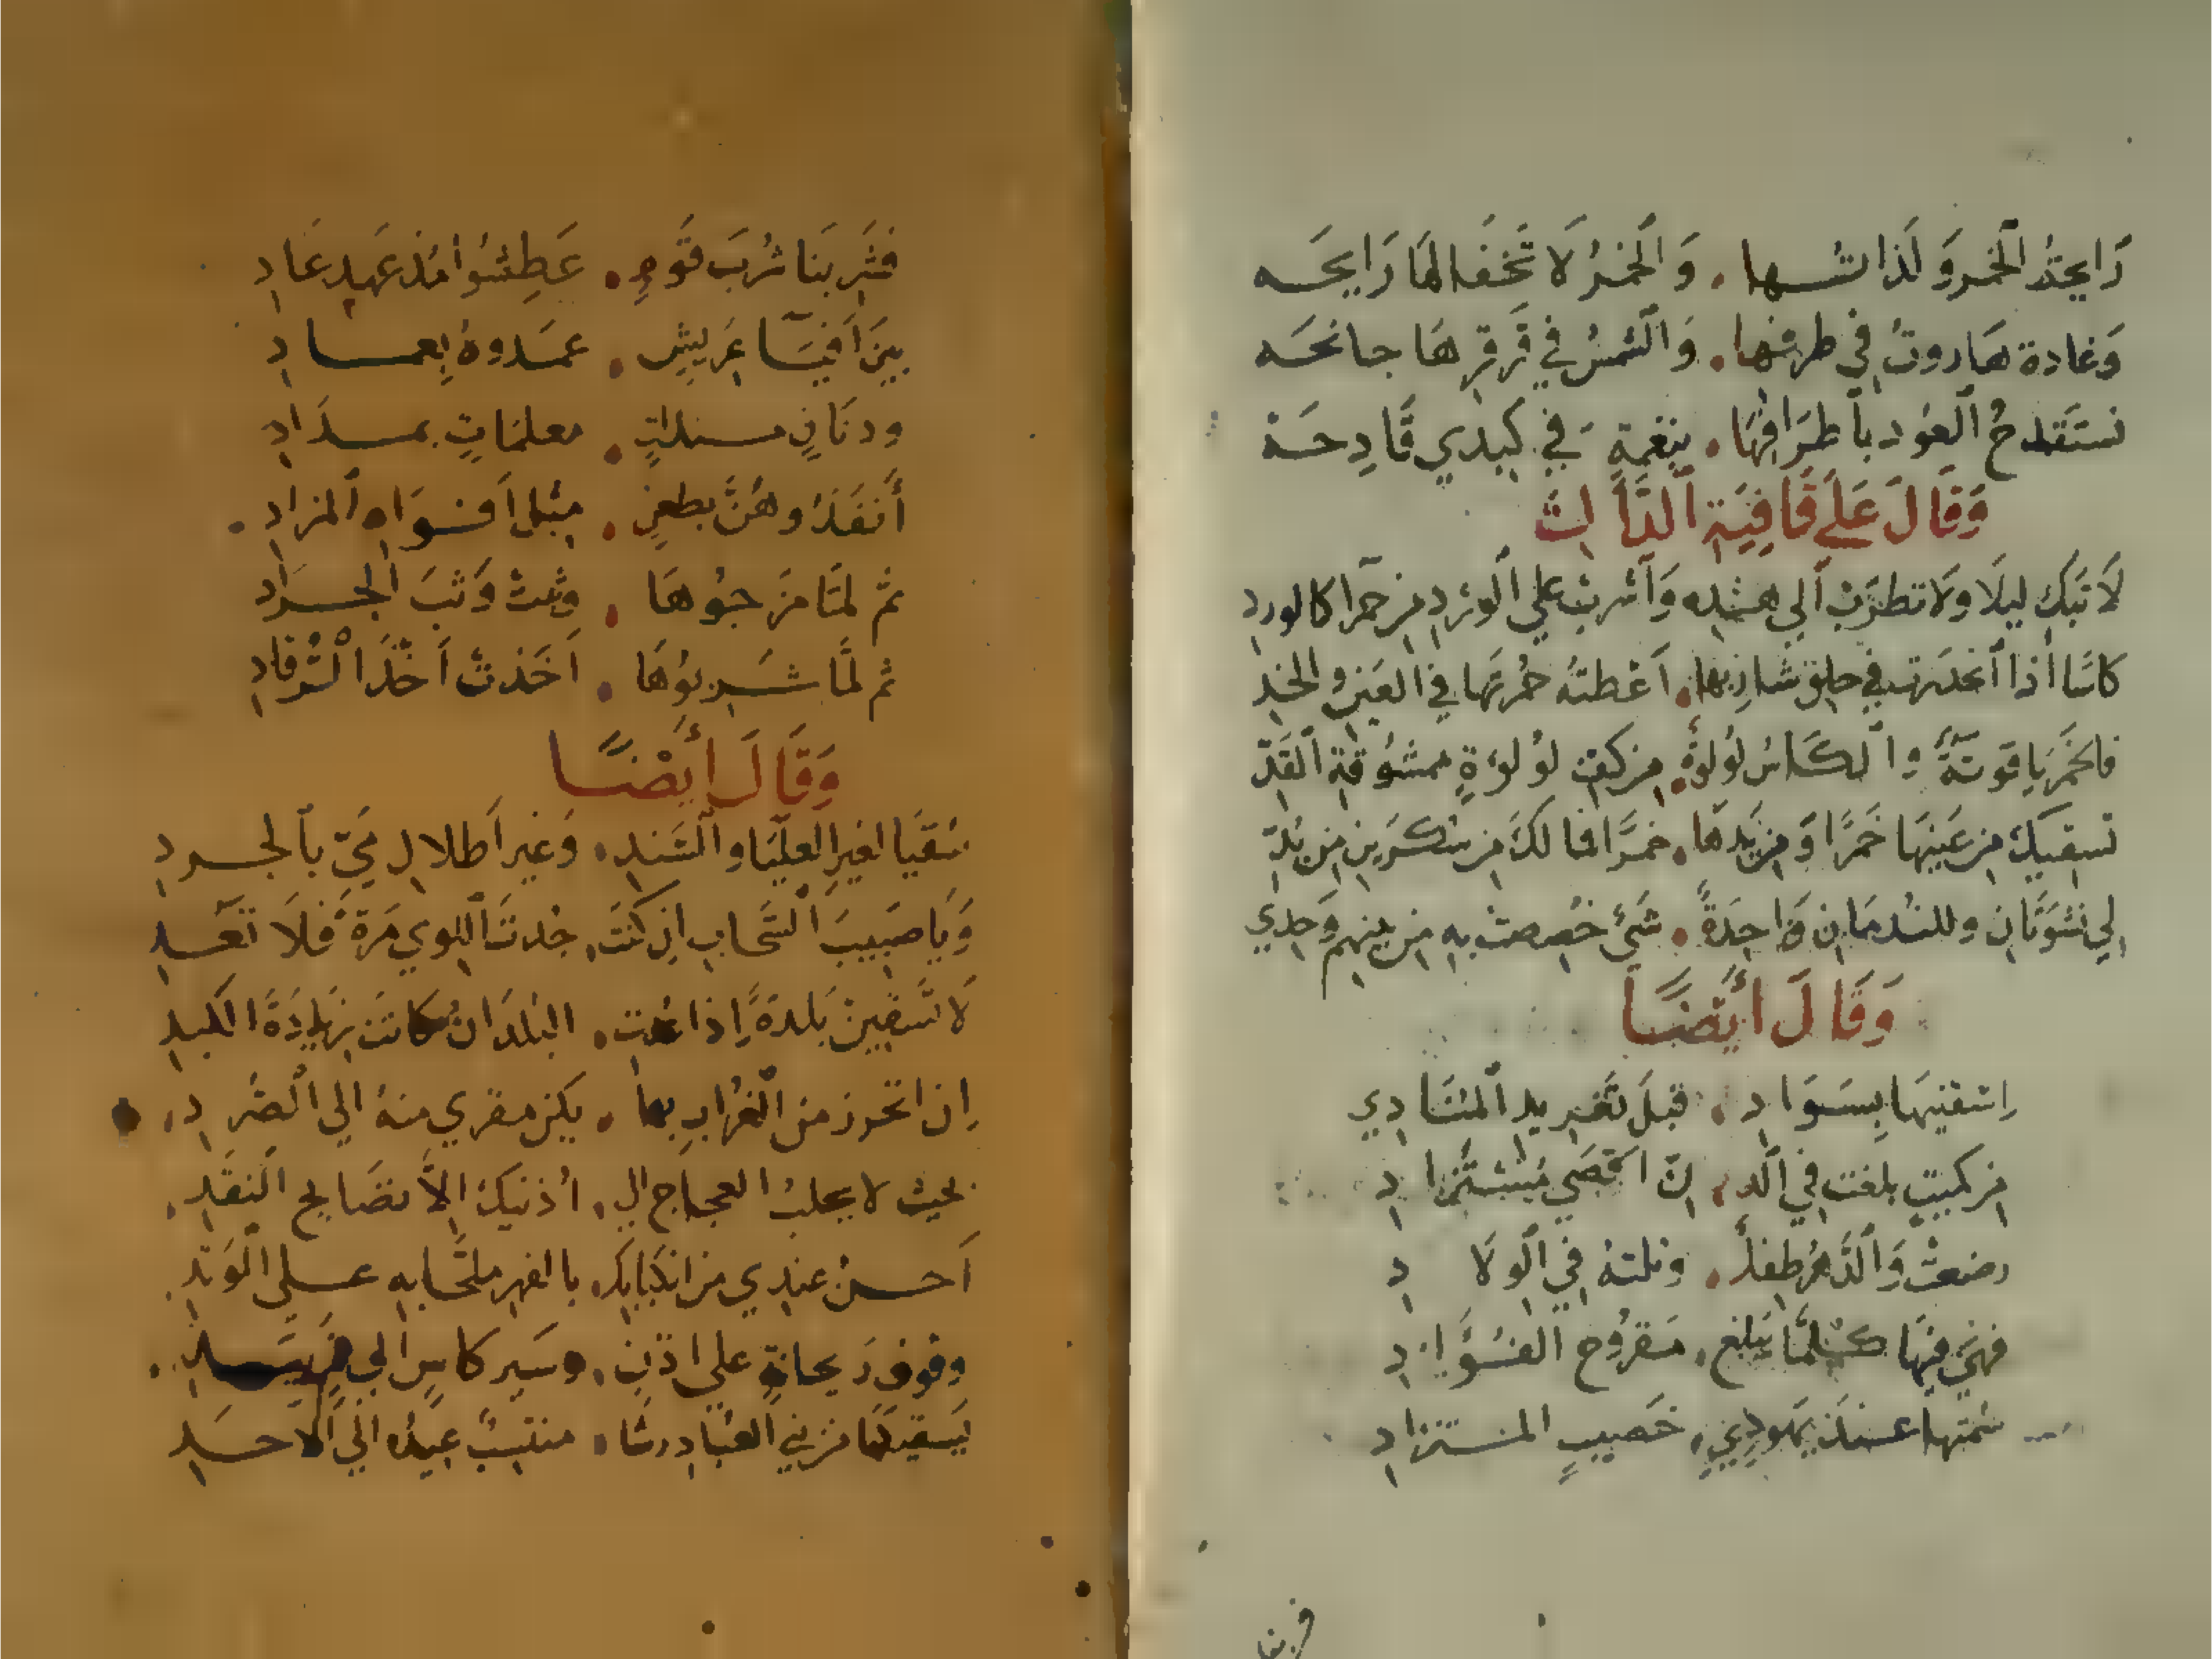 رَايحتُه الخمر وَلَذاتُها . وَالخمرُ لَا تخفَا لهَا رَايحَه
وَغادة هَاروتُ في طرفها . وَالشمسُ في قَرقرهَا جانحَه
تستَقدحُ العُود بأطرَافِهَا . بنغمةٍ في كبدي قَادِحَة
وَقَالَ عَلَى قَافِيَةِ الدَّالِ
لَا تَبكِ ليلَا وَلَا تطرَبْ الي هندِه وَاشربْ علي الورْدِ من حمرا كالورد
كاسًا اذا انحدَرَت في حلق شاربها . اعْطتهُ حُمرتَها في العَين والخد
فالخَمرُ ياقوتَةٌ والكاسُ لؤلوةٌ . من كفِّ لؤلؤةٍ ممشُوقةِ القَدّ
تسقيكَ من عَينهَا خَمرًا وَمِن يَدهَا . خمرًا فما لكَ من سُكرَين من بُدّ
لِي نَشوَتَانِ وللنُدمَانِ وَاحِدَةٌ . شَيٌ خُصِصتُ بهِ من بينهم وَحدي
وَقَالَ أيضًا
اسقنيهَا بِسَوَادِ . قبلَ تَغريدِ المنَادِي
من كميتٍ بلغت في الدن اقصَي مُستَزادِ
رضعتْ وَالدَّهرُ طِفلٌ . وتلتهُ في الولَادِ
فهيَ فيهَا كلَّمَا يَبلغ . مَقرُوح الفُؤادِ
شمتها عندَ يهودِيٍ خَصيبٍ المستزادِ
فشربنا
فشَربنَا شُربَ قَومٍ . عَطِشُوا مُذ عَهدِ عَادِ
بينَ افيَآ عَرِيشٍ . عمَدوهُ بِعمادِ
ودنَانٍ مسنداتٍ . معلمَاتٍ بمدَادِ
أنفَذُوهُنَّ بطعنٍ . مثل افواه المزادِ
ثم لمَّا مزَجوُهَا . وثبتْ وَثبَ الجرَادِ
ثم لمَّا شَربوُهَا . اخَذتْ اخْذَ الرُّقادِ
وَقَالَ أيْضًا
سُقيَا لغيرِ العليَا والسَندِ . وَغير اَطلالِ مَيّ بالجردِ
وَيَا صَبيبَ السَّحابِ ان كنتَ . جُدتَ اللوي مَرةً فلَا تَعُدِ
لَا تَسقينْ بَلدَةً اذا عُدت . البُلدَانُ كانتْ زيَادَةَ الكبدِ
ان اتحرز من الغُرابِ بها . يكن مفري منهُ الي الصُّردِ
بحيث لا يجلبُ العجاج الي . اذنيكَ الّا تصَايح النقَدِ
اَحسنُ عندي من انكبَابِكَ . بالفهر ملحًّا بهِ علي الوَتدِ
وقوفِ رَيحانةٍ علي اذنٍ . وسَير كاسٍ الي فمٍ بيَدِ
يَسقيكَهَا من بني العبَادِ رشَا . منتسبٌ عيدُه الي الاحدِ